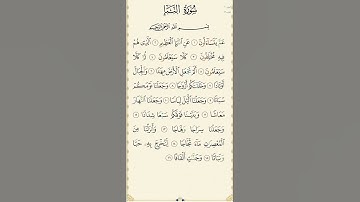 سُورَةُ النَّبَإِ
بِسْمِ اللَّهِ الرَّحْمَٰنِ الرَّحِيمِ
عَمَّ يَتَسَاءَلُونَ ١ عَنِ النَّبَإِ الْعَظِيمِ ٢ الَّذِي هُمْ
فِيهِ مُخْتَلِفُونَ ٣ كَلَّا سَيَعْلَمُونَ ٤ ثُمَّ كَلَّا
سَيَعْلَمُونَ ٥ أَلَمْ نَجْعَلِ الْأَرْضَ مِهَادًا ٦ وَالْجِبَالَ
أَوْتَادًا ٧ وَخَلَقْنَاكُمْ أَزْوَاجًا ٨ وَجَعَلْنَا نَوْمَكُمْ
سُبَاتًا ٩ وَجَعَلْنَا اللَّيْلَ لِبَاسًا ١٠ وَجَعَلْنَا النَّهَارَ
مَعَاشًا ١١ وَبَنَيْنَا فَوْقَكُمْ سَبْعًا شِدَادًا ١٢
وَجَعَلْنَا سِرَاجًا وَهَّاجًا ١٣ وَأَنْزَلْنَا مِنَ
الْمُعْصِرَاتِ مَاءً ثَجَّاجًا ١٤ لِنُخْرِجَ بِهِ حَبًّا
وَنَبَاتًا ١٥ وَجَنَّاتٍ أَلْفَافًا ١٦